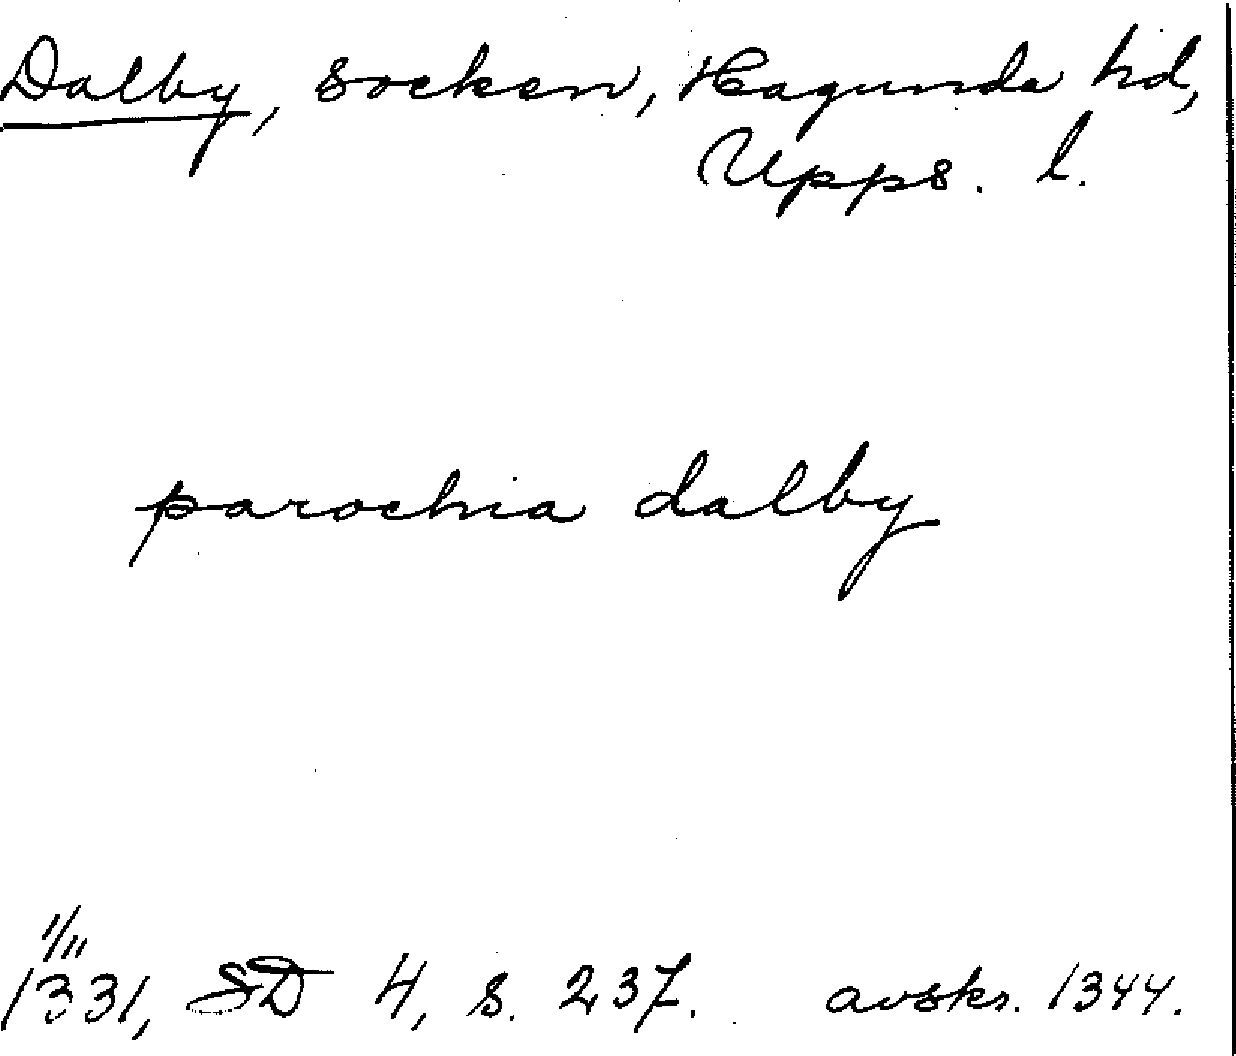 Dalby, socken, Hagunda hd,
Upps. l.
parochia dalby
1/11
1331, SD 4, s. 237. avskr. 1344.